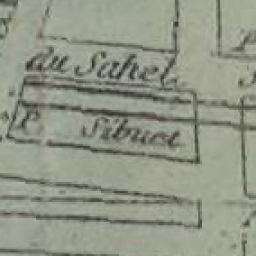 du Sahel
P. Sibuet